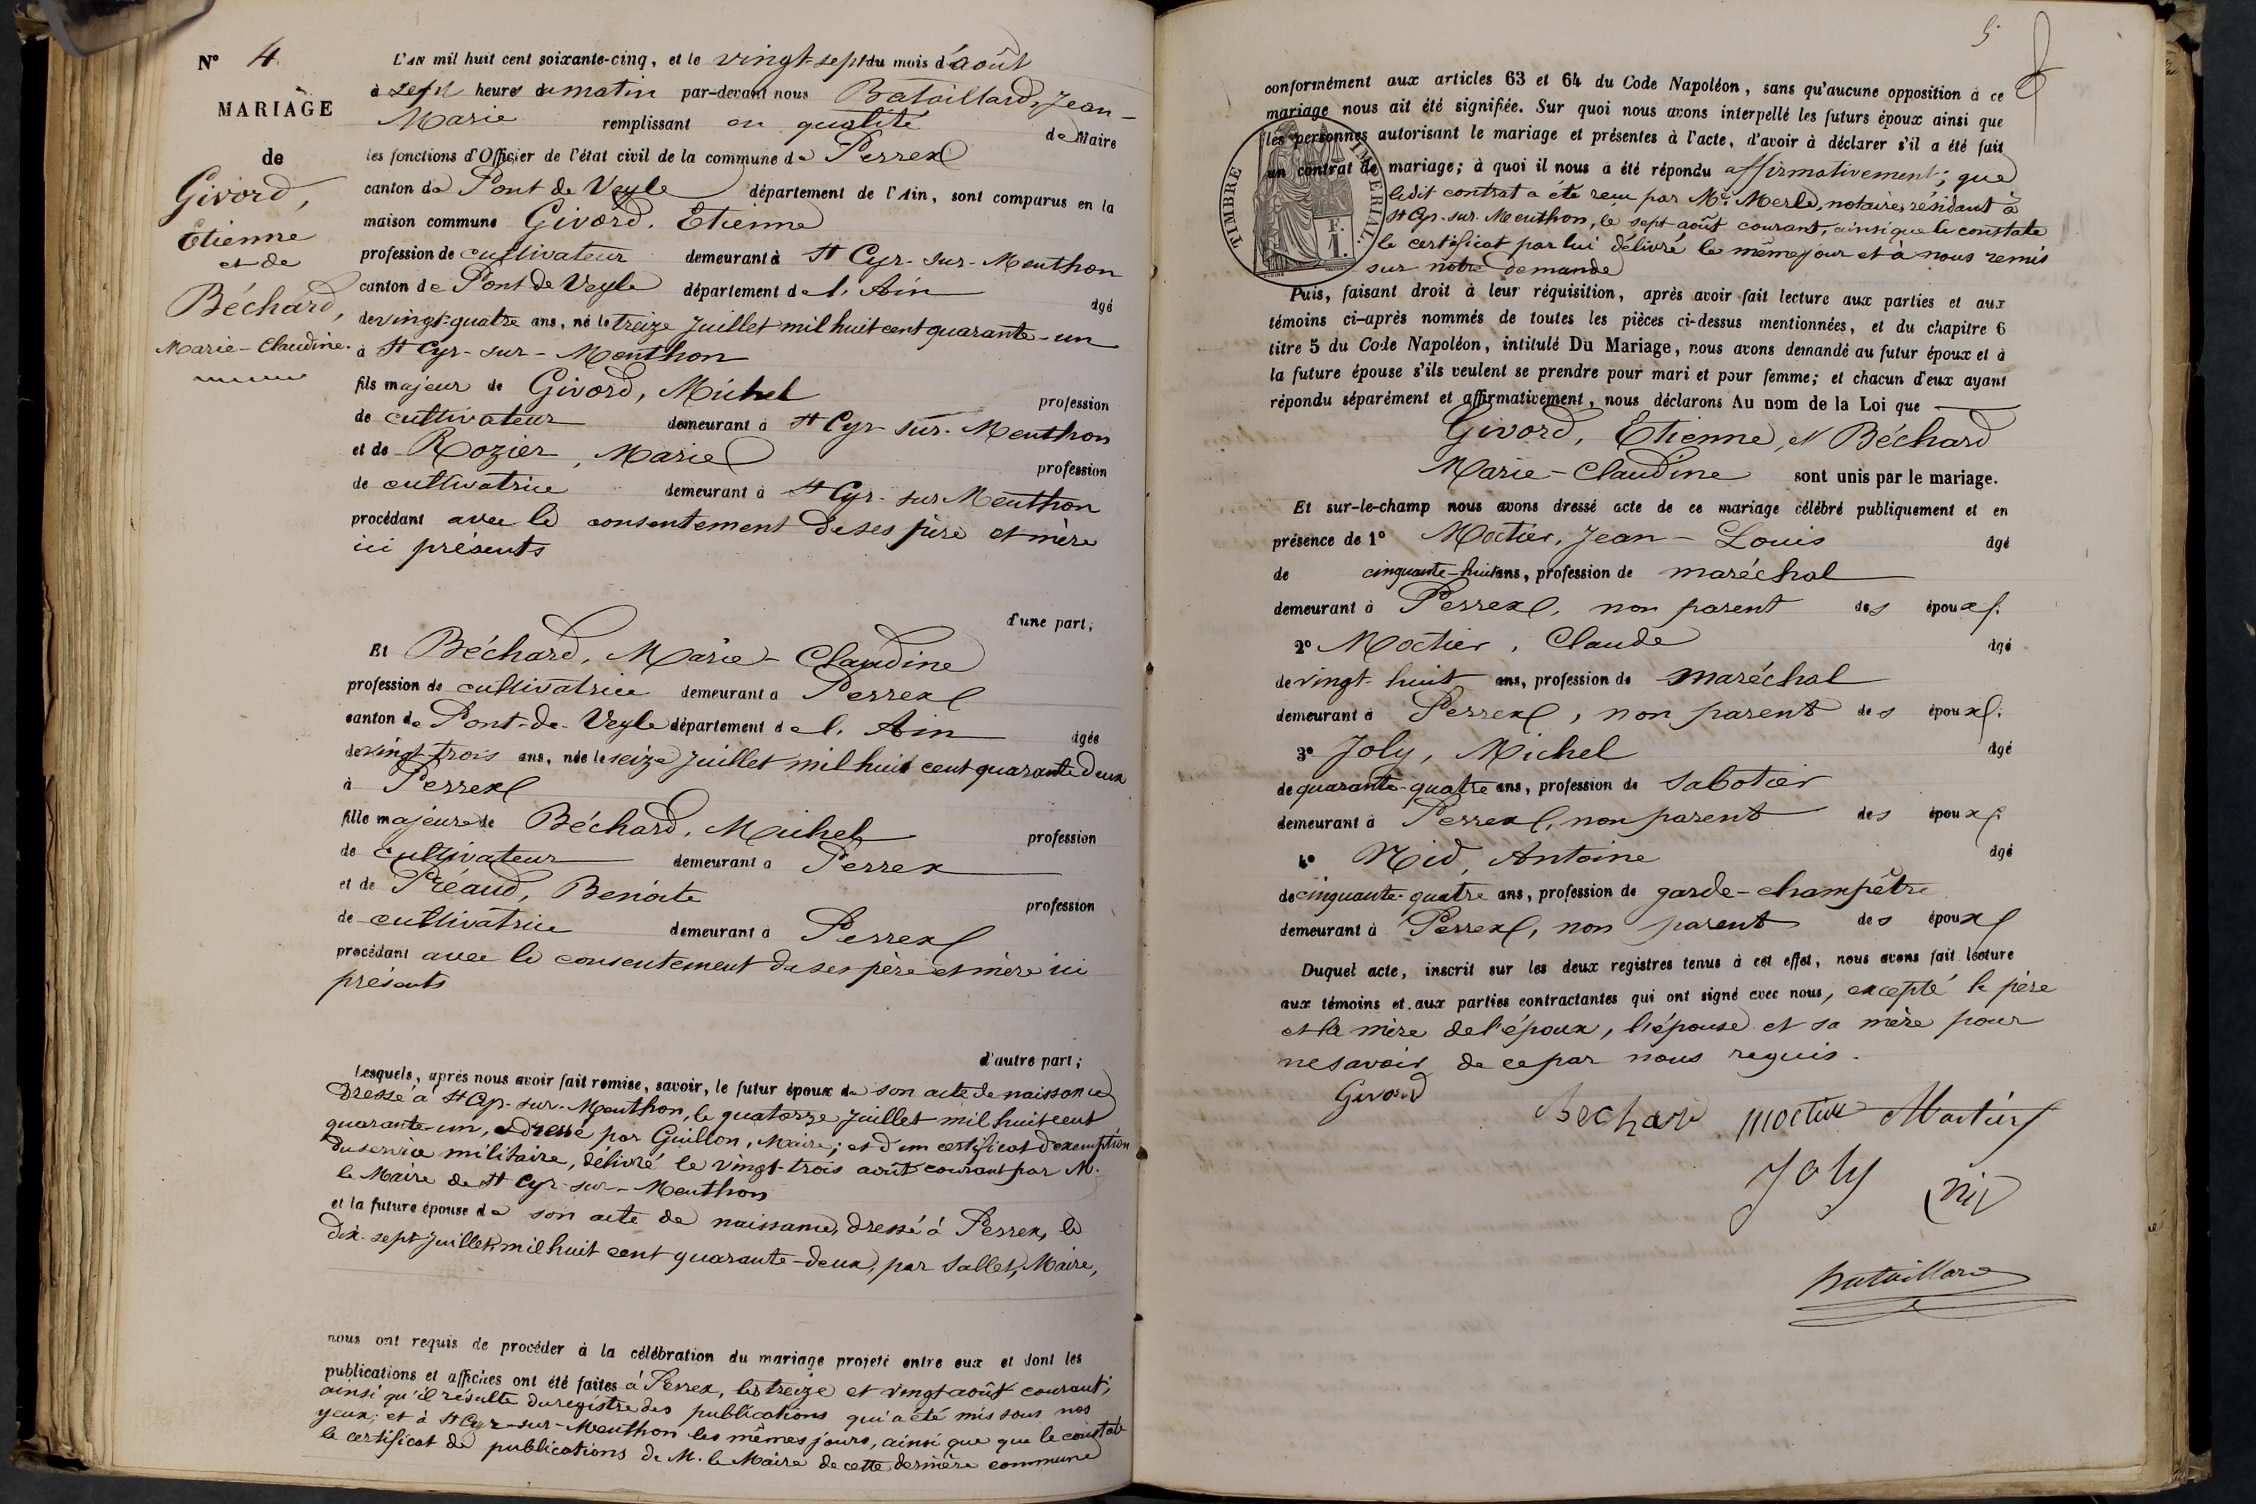 N° 4.
MARIAGE
de
Givord,
Etienne
et de
Béchard,
Marie-Claudine.
L'AN mil huit cent soixante-cinq, et le vingt-sept du mois d'août
à sept heures du matin par-devant nous Bataillard, Jean-
Marie remplissant en qualité de Maire
les fonctions d'Officier de l'état civil de la commune de Perrex
canton de Pont de Veyle département de l'Ain, sont comparus en la
maison commune Givord, Etienne
profession de cultivateur demeurant à St Cyr-sur-Menthon
canton de Pont de Veyle département de l'Ain âgé
de vingt-quatre ans, né le treize Juillet mil huit cent quarante-un
à St Cyr-sur-Menthon
fils majeur de Givord, Michel profession
de cultivateur demeurant à St Cyr-sur-Menthon
et de Rozier, Marie profession
de cultivatrice demeurant à St Cyr-sur Menthon
procédant avec le consentement de ses père et mère
ici présents
d'une part;
Et Béchard, Marie-Claudine
profession de cultivatrice demeurant à Perrex
canton de Pont-de-Veyle département de l'Ain âgée
de vingt-trois ans, née le seize Juillet mil huit cent quarante deux
à Perrex
fille majeure de Béchard, Michel profession
de cultivateur demeurant à Perrex
et de Préaud, Benoite profession
de cultivatrice demeurant à Perrex
procédant avec le consentement de ses père et mère ici
présents
d'autre part;
Lesquels, après nous avoir fait remise, savoir, le futur époux de son acte de naissance
dressé à St Cyr-sur-Menthon, le quatorze Juillet mil huit cent
quarante-un, dressé par Guillon, Maire; et d'un certificat d'exemption
du service militaire, délivré le vingt-trois août courant par M.
le Maire de St Cyr-sur-Menthon
et la future épouse de son acte de naissance, dressé à Perrex, le
dix-sept Juillet mil huit cent quarante-deux, par Sallet, Maire,
nous ont requis de procéder à la célébration du mariage projeté entre eux et dont les
publications et affiches ont été faites à Perrex, les treize et vingt août courant,
ainsi qu'il résulte du registre des publications qui a été mis sous nos
yeux; et à St Cyr-sur-Menthon les mêmes jours, ainsi que que le constate
le certificat de publications de M. le Maire de cette dernière commune
5.
conformément aux articles 63 et 64 du Code Napoléon, sans qu'aucune opposition à ce
mariage nous ait été signifiée. Sur quoi nous avons interpellé les futurs époux ainsi que
les personnes autorisant le mariage et présentes à l'acte, d'avoir à déclarer s'il a été fait
un contrat de mariage; à quoi il nous a été répondu affirmativement; que
ledit contrat a été reçu par Me Merle, notaire, résidant à
St Cyr-sur-Menthon, le sept août courant, ainsi que le constate
le certificat par lui délivré le même jour et à nous remis
sur notre demande
TIMBRE IMPÉRIAL.
F.
1.
Puis, faisant droit à leur réquisition, après avoir fait lecture aux parties et aux
témoins ci-après nommés de toutes les pièces ci-dessus mentionnées, et du chapitre 6
titre 5 du Code Napoléon, intitulé Du Mariage, nous avons demandé au futur époux et à
la future épouse s'ils veulent se prendre pour mari et pour femme; et chacun d'eux ayant
répondu séparément et affirmativement, nous déclarons Au nom de la Loi que
Givord, Etienne, et Béchard
Marie-Claudine sont unis par le mariage.
Et sur-le-champ nous avons dressé acte de ce mariage célébré publiquement et en
présence de 1° Moctier, Jean-Louis âgé
de cinquante-huit ans, profession de maréchal
demeurant à Perrex, non parent des époux.
2° Moctier, Claude âgé
de vingt-huit ans, profession de maréchal
demeurant à Perrex, non parent des époux.
3° Joly, Michel âgé
de quarante-quatre ans, profession de sabotier
demeurant à Perrex, non parent des époux.
4° Nid, Antoine âgé
de cinquante-quatre ans, profession de garde-champêtre
demeurant à Perrex, non parent des époux
Duquel acte, inscrit sur les deux registres tenus à cet effet, nous avons fait lecture
aux témoins et aux parties contractantes qui ont signé avec nous, excepté le père
et la mère de l'époux, l'épouse et sa mère pour
ne savoir de ce par nous requis.
Givord
Bechard moctier Moctier
Joly nid
Bataillard